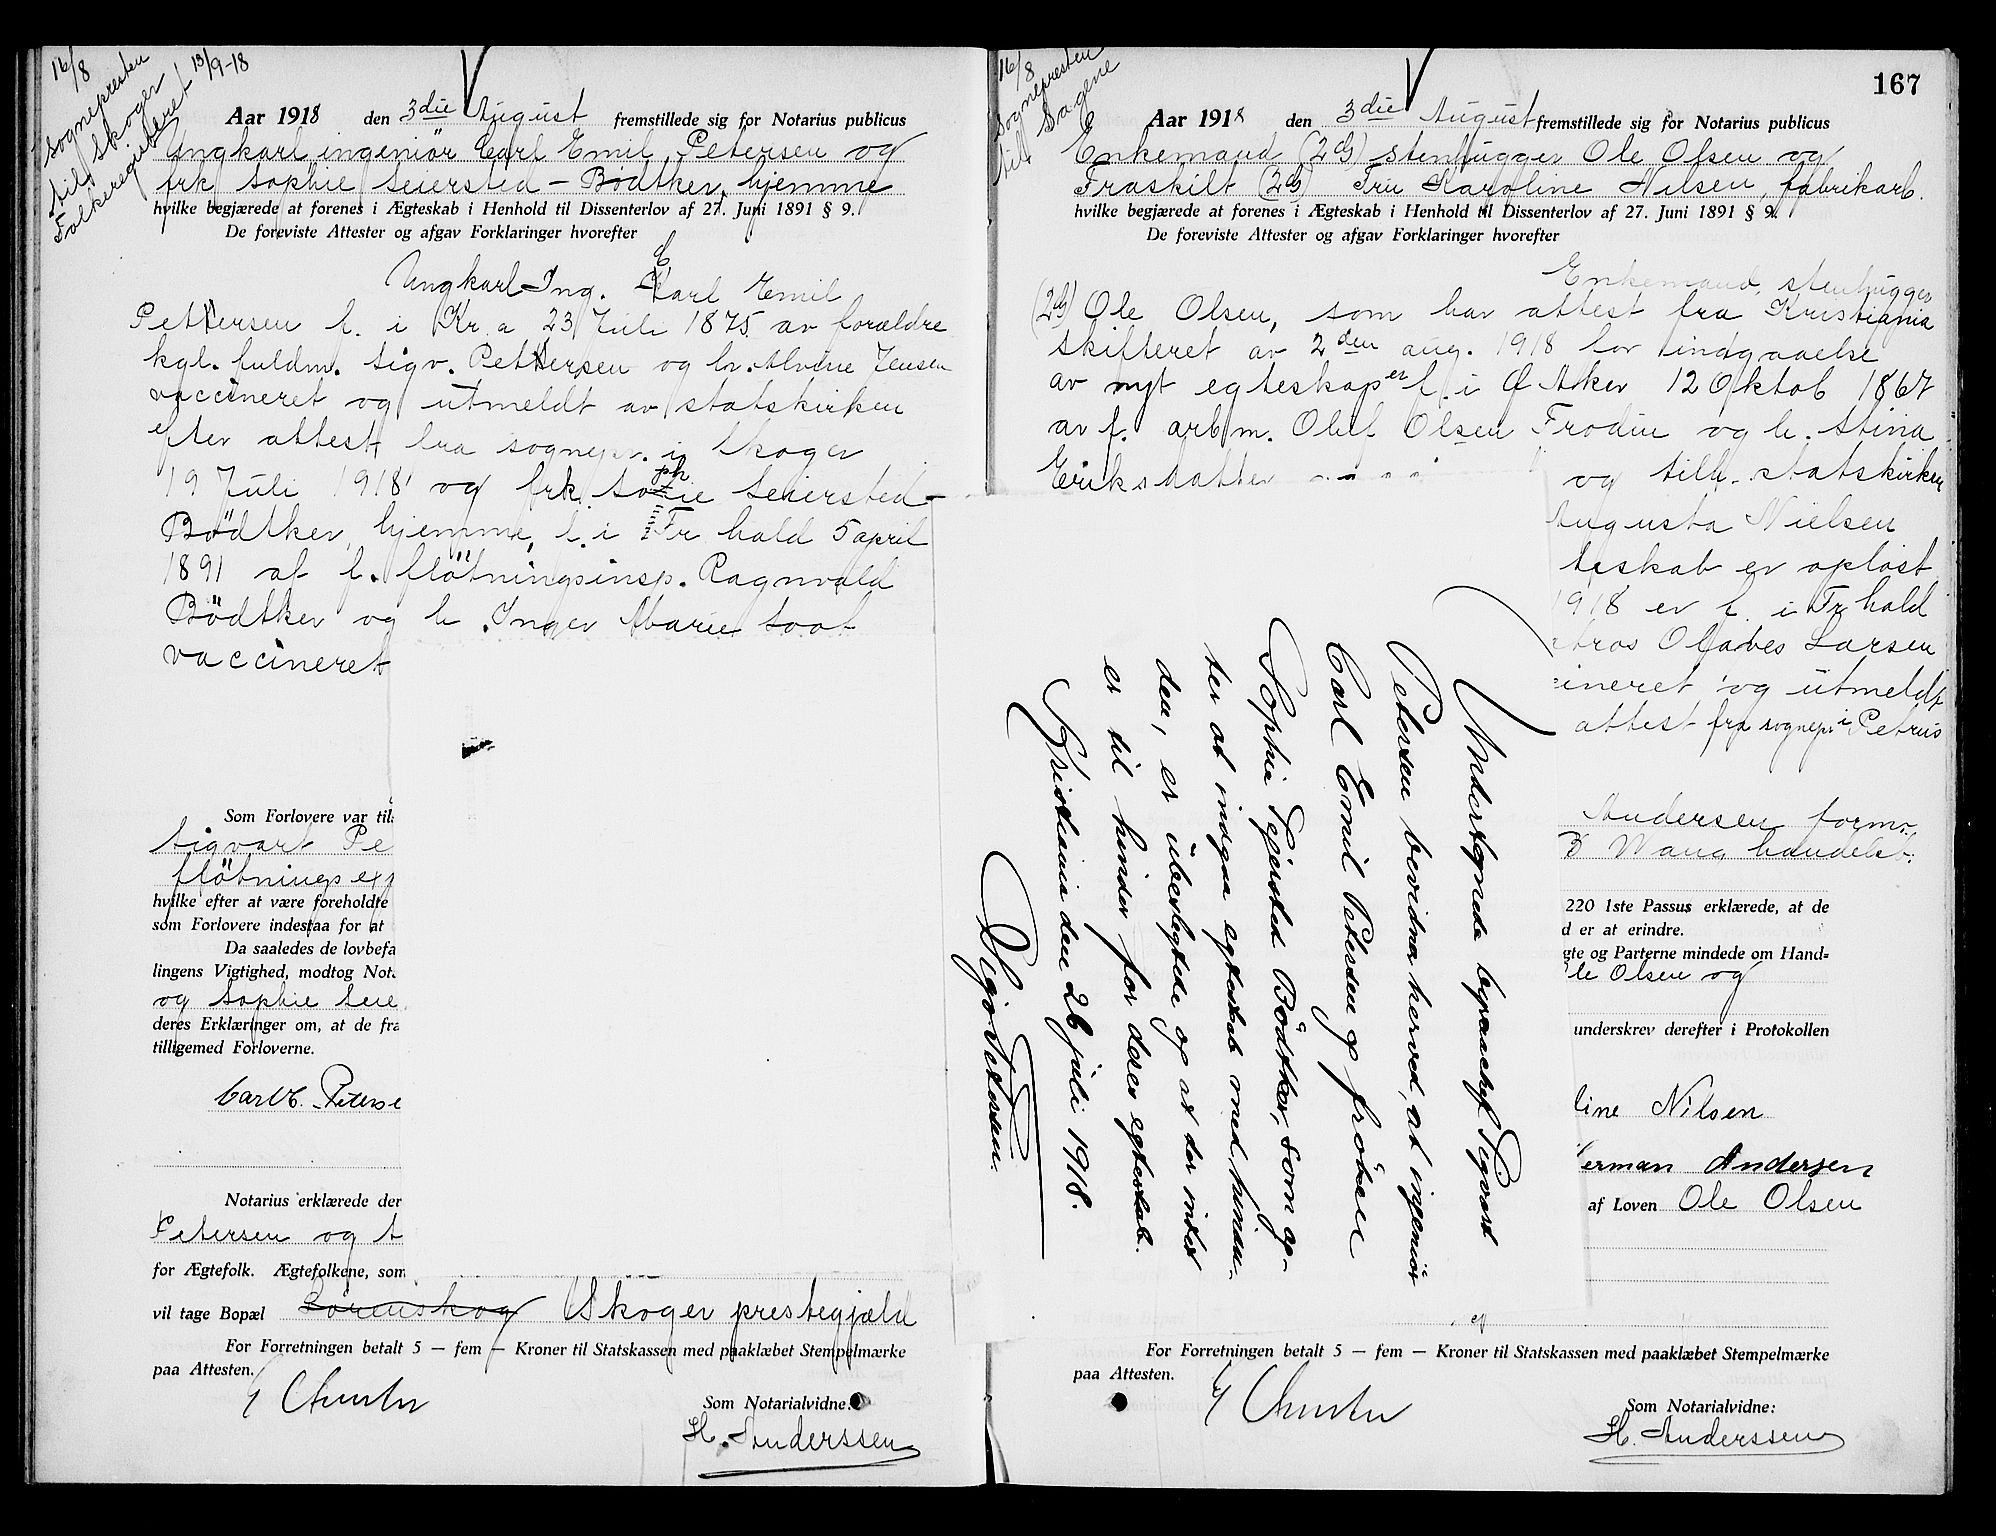 16/8
sognepresten
til Skoger
Folkeregisteret 13/9-18
Aar 1918 den 3die August fremstillede sig for Notarius publicus
Ungkarl, ingeniör Carl Emil Petersen og
frk Sophie Seiersted-Bødtker, hjemme
hvilke begjærede at forenes i Ægteskab i Henhold til Dissenterlov af 27. Juni 1891 § 9.
De foreviste Attester og afgav Forklaringer hvorefter
Ungkarl Ing. Carl Emil
Petersen f. i Kr.a 23 Juli 1875 av forældre
kgl. fuldm. Sigv. Petersen og h. Alvine Jensen
vaccineret og utmeldt av statskirken
efter attest fra sognepr. i Skoger
19 Juli 1918 og frk. Sophie Seiersted-
Bödtker, hjemme, f. i Fr hald 5 april
1891 af f. flötningsinsp. Ragnvald
Bödtker og h. Inger Marie Soot
vaccineret
Som Forlovere var til
Sigvart Pe
flötnings
hvilke efter at være foreholdte
som Forlovere indestaa for at
Da saaledes de lovbefa
lingens Vigtighed, modtog Not
og Sophie Seie
deres Erklæringer om, at de fra
tilligemed Forloverne.
Carl E. Peterse
Notarius erklærede der
Petersen og
for Ægtefolk. Ægtefolkene, som
vil tage Bopæl Sörenskog Skoger prestegjæld
For Forretningen betalt 5 — fem — Kroner til Statskassen med paaklæbet Stempelmærke
paa Attesten.
Som Notarialvidne:
H. Anderssen
167
16/8
Sognepresten
til Sagene
Aar 1918 den 3die August fremstillede sig for Notarius publicus
Enkemand (2 G) stenhugger Ole Olsen og
Fraskilt (2 G) Fru Karoline Nilsen, fabrikarb.
hvilke begjærede at forenes i Ægteskab i Henhold til Dissenterlov af 27. Juni 1891 § 9.
De foreviste Attester og afgav Forklaringer hvorefter
Enkemand, stenhugger
(2 G) Ole Olsen, som har attest fra Kristiania
Skifteret av 2den aug. 1918 for indgaaelse
av nyt egteskap er f. i Aker 12 Oktob 1867
av f. arbm. Oluf Olsen Frodin og h. Stina
Eriksdatter og tilh. statskirken
Augusta Nielsen
teskab er opløst
1918 er f. i Fr hald
tros Olaves Larsen
cineret og utmeldt
attest fra sognepr i Petrus
Andersen form.
Wang handelsb.
220 1ste Passus erklærede, at de
d er at erindre.
gte og Parterne mindede om Hand-
le Olsen og
underskrev derefter i Protokollen
line Nilsen
erman Andersen
af Loven Ole Olsen
For Forretningen betalt 5 — fem — Kroner til Statskassen med paaklæbet Stempelmærke
paa Attesten.
Som Notarialvidne:
H. Anderssen
Undertegnede byraachef Sigvart
Petersen bevidner herved, at ingeniör
Carl Emil Petersen og fröken
Sophie Sejersted Bödtker, som ag-
ter at indgaa egteskab med hinan-
den, er übeslegtede og at der intet
er til hinder for deres egteskab.
Kristiania den 26 juli 1918.
Sigv. Petersen.